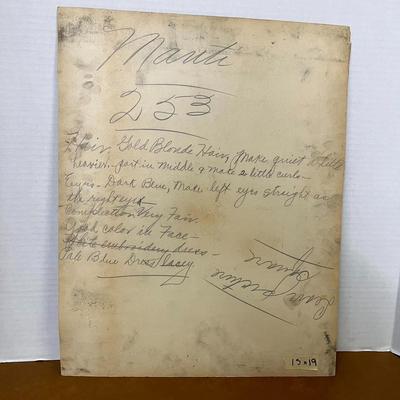 Manti
253
Hair, Gold Blonde Hair, Make quiet a little
heavier - part in middle & make 2 little curls -
Eyes - Dark Blue, Make left eyes straight as
the right eye
Complection Very Fair
Good color in Face -
White embroidery dress -
Pale Blue Dress lacey
Square
15x19